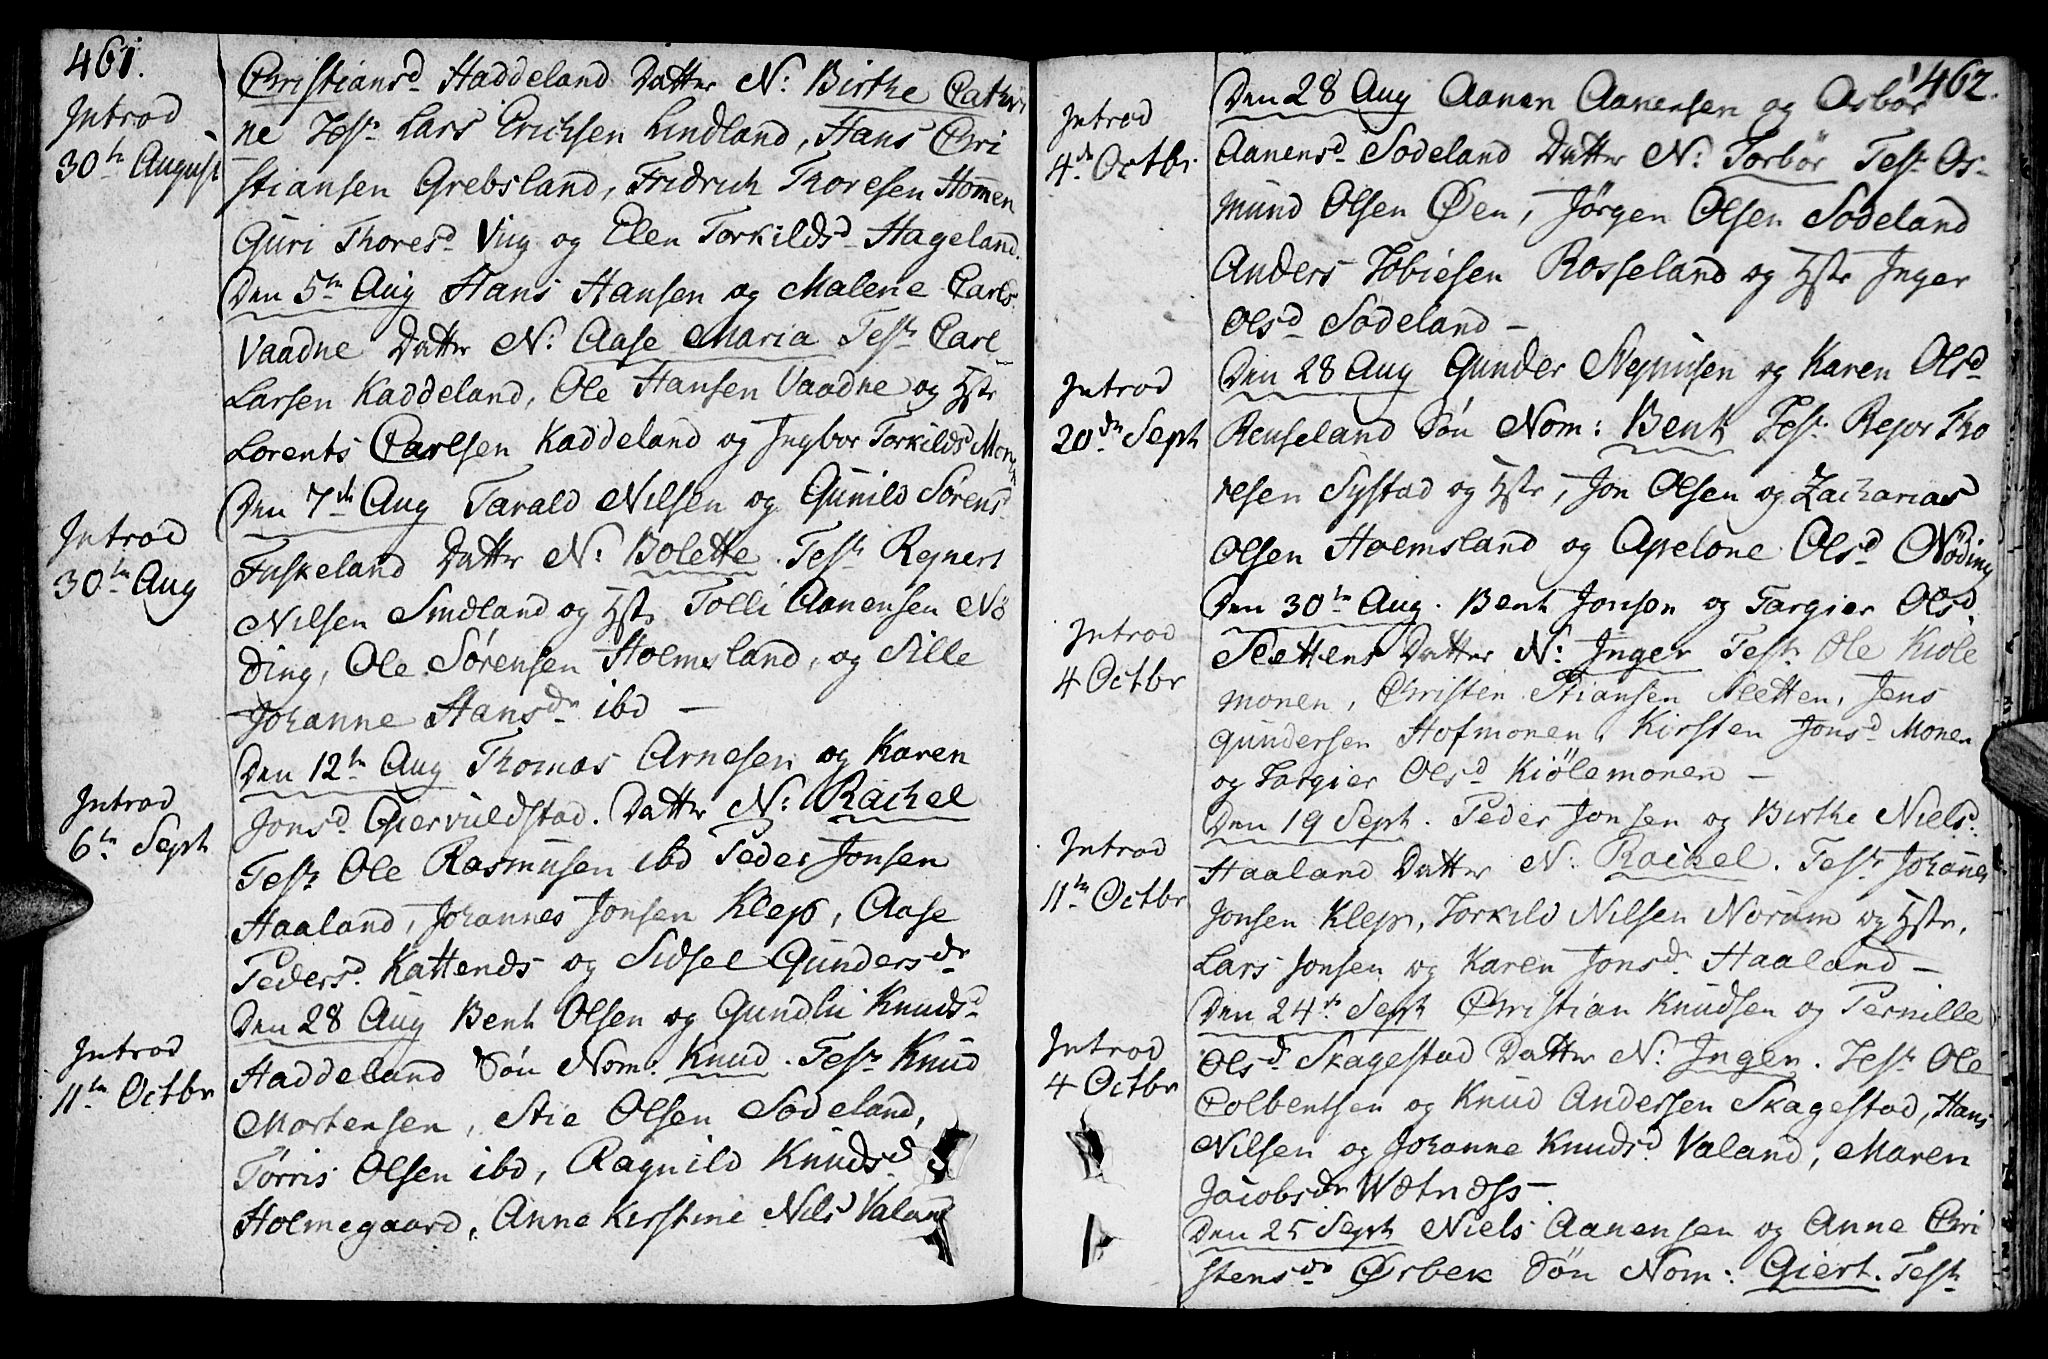 461.
Introd
30te August
Christiansd Haddeland Datter N: Birthe Cathri
ne Test Lars Erichsen Lindland, Hans Chri
stiansen Grebsland, Fridrich Thoresen Homen
Guri Thoresd Vug og Elen Torkildsd Hageland.
Den 5te Aug Hans Hansen og Malene Carlsd
Vaadne Datter N: Aase Maria Test Carl
Larsen Kaddeland, Ole Hansen Vaadne og Hstr
Lorents Carlsen Kaddeland og Ingbor Torkilds
Introd
30te Aug
Den 7de Aug Tarald Nilsen og Gunild Sørensd
Fuskeland Datter N: Bolette. Test Regnert
Nilsen Sindland og Hstr Tolli Aanensen Nö
ding, Ole Sørensen Holmsland, og Sille
Johanne Hansdr ibd –
Introd
6te Sept
Den 12te Aug Thomas Arnesen og Karen
Jonsd Giervuldstad. Datter N: Rachel
Test Ole Rasmusen ibd Peder Jonsen
Haaland, Johannes Jonsen Klep, Aase
Pedersd. Kattends og Sidsel Gundersdr
Introd
11te Octbr
Den 28 Aug Bent Olsen og Gundlii Knudsd
Haddeland Sön Nom: Knud. Test Knud
Mortensen, Stie Olsen Sodeland,
Torris Olsen ibd, Ragnild Knudsd
Holmegaard, Anne Kirstine Nilsd Valand
462.
Introd
4de Octbr
Den 28 Aug Aanen Aanensen og Asbor
Aanensd Sodeland Datter N: Torbör Test As-
mund Olsen Øen, Jörgen Olsen Sodeland
Anders Tobiesen Rosseland og Hstr Inger
Olsd Sodeland –
Introd
20de Sept
Den 28 Aug Gunder Stepnisen og Karen Olsd
Renseland Sön Nom: Bent Test Rejor Tho
resen Systad og Hstr, Jon Olsen og Zacharias
Olsen Holmsland og Apelone Olsd Nöding
Introd
4 Octbr
Den 30te Aug. Bent Jonson og Targier Olsd
Slettens Datter N: Inger Test Ole Kiöle
monen, Christen Stiansen Sletten, Jens
Gundersen Hofmonen, Kirsten Jonsd Monen
og Targier Olsd Kiölemonen –
Introd
11te Octbr
Den 19 Sept. Peder Jonsen og Birthe Nielsd.
Haaland Datter N: Rachel. Test Johannes
Jonsen Klep, Torkild Nilsen Norum og Hstr,
Lars Jonsen og Karen Jonsdr Haaland –
Introd
4 Octbr
Den 24de Sept Christian Knudsen og Pernille
Olsd Skagestad Datter N: Inger. Test Ole
Colbentsen og Knud Andersen Skagestad, Hans
Nilsen og Johanne Knudsd Valand, Maren
Jacobsdr Wetness –
Den 25 Sept Niels Aanensen og Anne Chri
stensdr Ørbek Sön Nom: Giert. Test